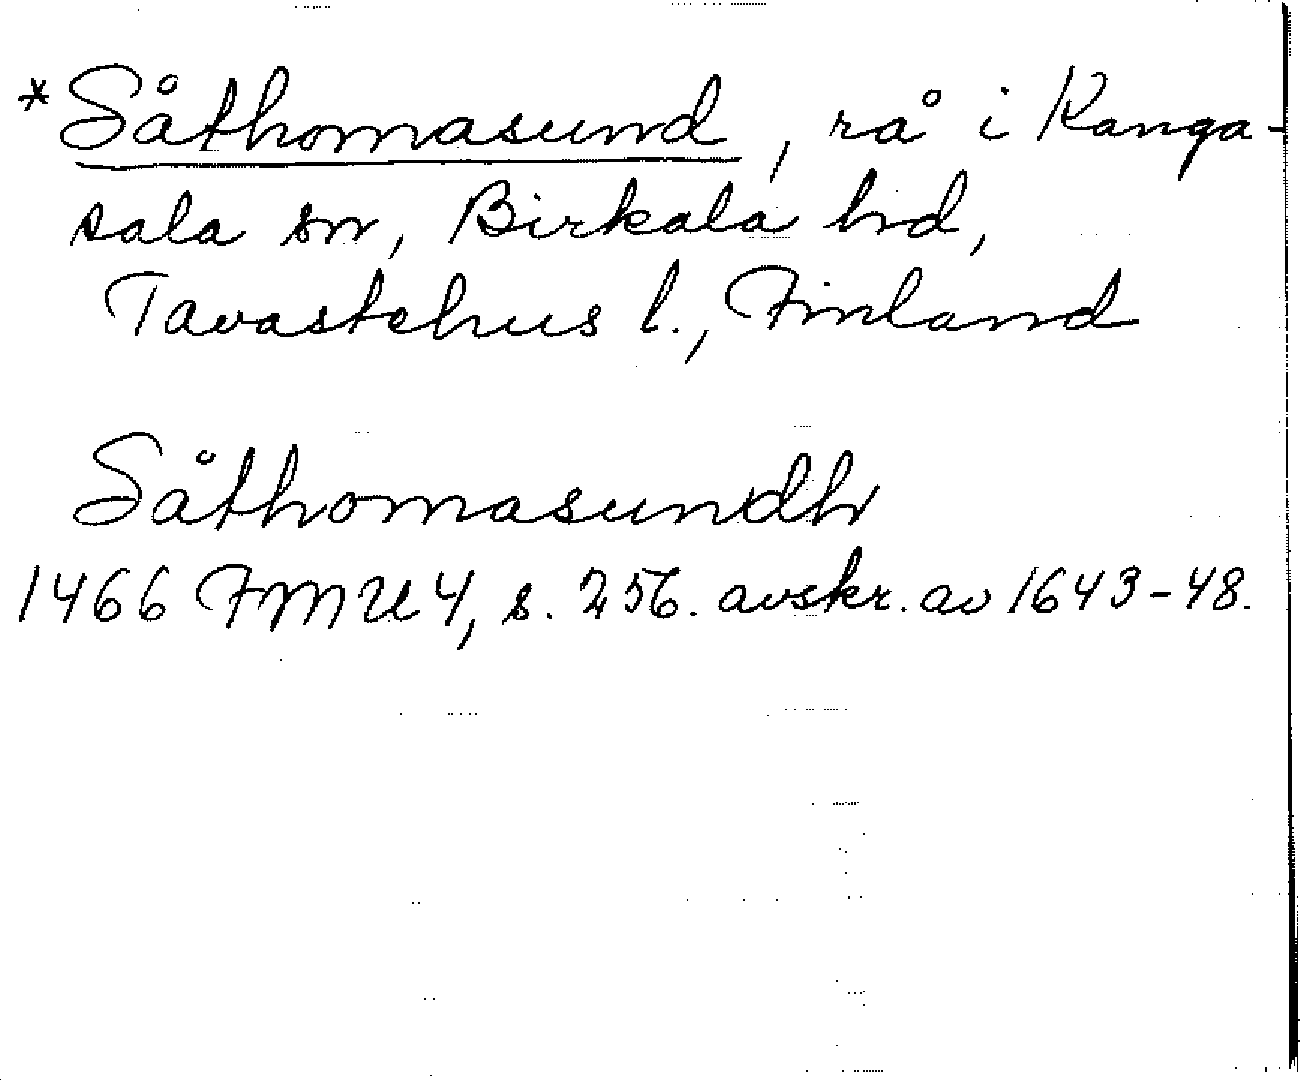 *Såthomasund, rå i Kanga-
sala sn, Birkala hd,
Tavastehus l., Finland
Såthomasundh
1466 FMU 4, s. 256. avskr. av 1643-48.